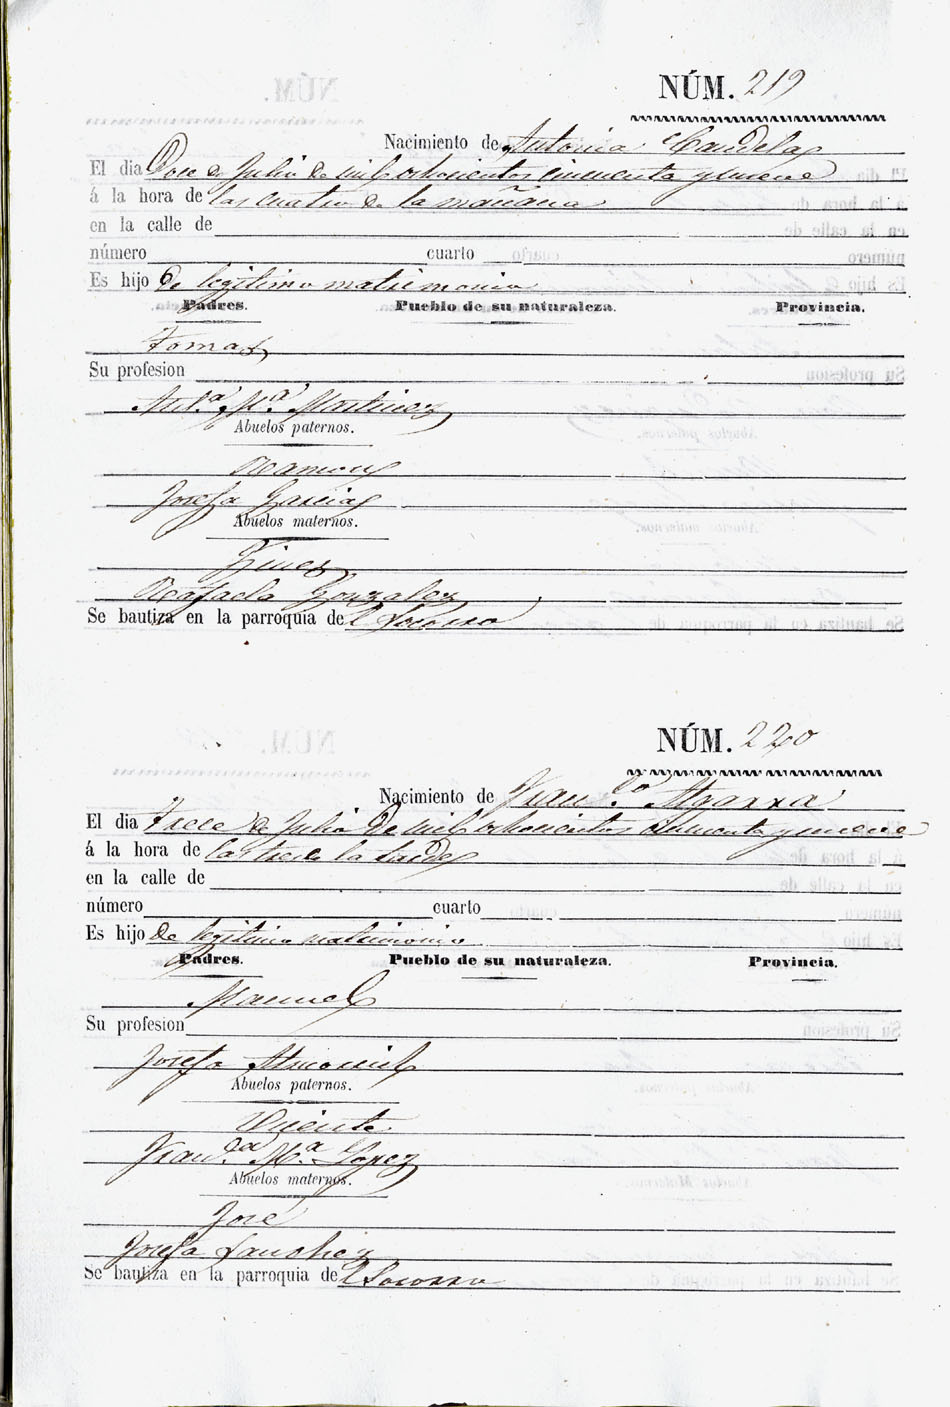 NÚM. 219
Nacimiento de Antonia Candelas
El dia Doce de Julio de mil ochocientos cincuenta y nueve
á la hora de las cuatro de la mañana
en la calle de
número cuarto
Es hijo de legitimo matrimonio
Padres. Pueblo de su naturaleza. Provincia.
Tomas
Su profesion
Ant.ª M.ª Martinez
Abuelos paternos.
Ramon
Josefa Garcia
Abuelos maternos.
Gines
Rafaela Gonzalez
Se bautiza en la parroquia del Socorro
NÚM. 220
Nacimiento de Fran.co Algarra
El dia Trece de Julio de mil ochocientos cincuenta y nueve
á la hora de las tres de la tarde
en la calle de
número cuarto
Es hijo de legitimo matrimonio
Padres. Pueblo de su naturaleza. Provincia.
Manuel
Su profesion
Josefa
Abuelos paternos.
Vicente
Fran.ca M.ª Lopez
Abuelos maternos.
José
Josefa Sanchez
Se bautiza en la parroquia del Socorro